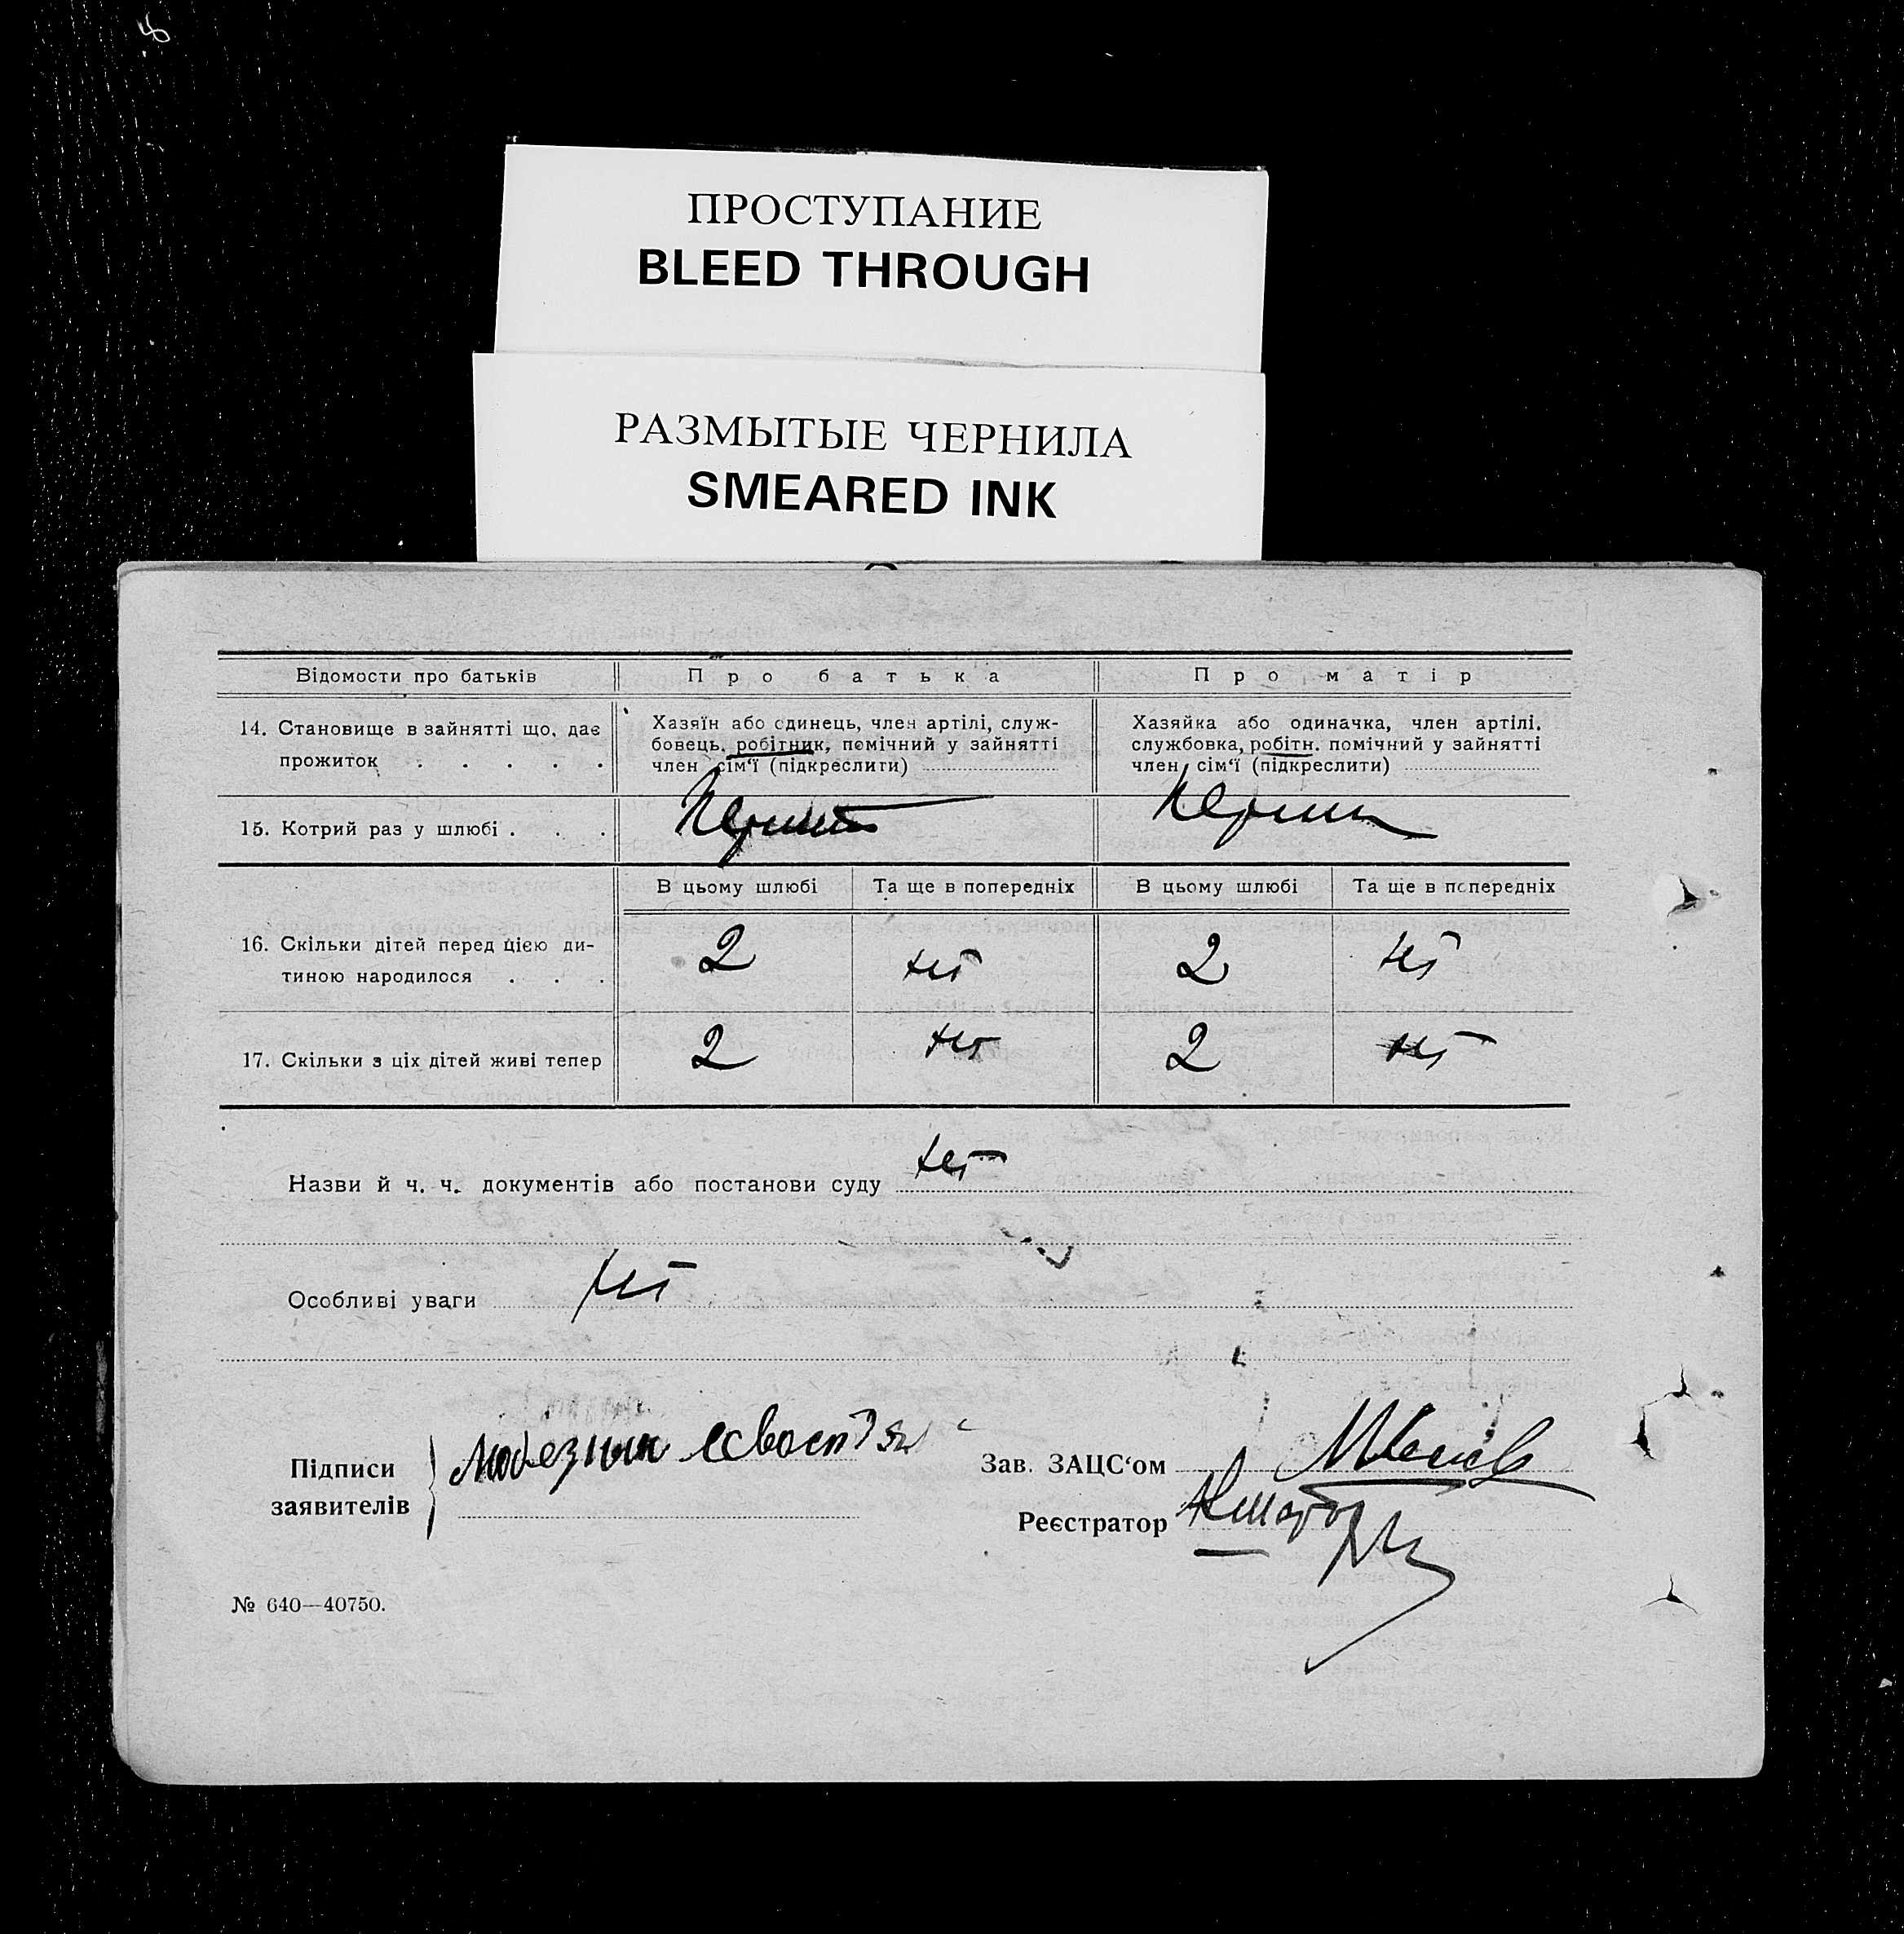 ПРОСТУПАНИЕ
BLEED THROUGH
РАЗМЫТЫЕ ЧЕРНИЛА
SMEARED INK
Відомости про батьків
Про батька
Про матір
14. Становище в зайнятті що, дає
прожиток . . . . .
Хазяїн або єдинець, член артілі, служ-
бовець, робітник, помічний у зайнятті
член сім'ї (підкреслити)
Хазяйка або одиначка, член артілі,
службовка, робітн. помічний у зайнятті
член сім'ї (підкреслити)
15. Котрий раз у шлюбі . . .
В цьому шлюбі
Та ще в попередніх
В цьому шлюбі
Та ще в попередніх
16. Скільки дітей перед цією ди-
тиною народилося . . .
2
нет
2
нет
17. Скільки з ціх дітей живі тепер
2
нет
2
нет
Назви й ч. ч. документів або постанови суду нет
Особливі уваги нет
Підписи
заявителів
Зав. ЗАЦС'ом
Реєстратор
№ 640—40750.